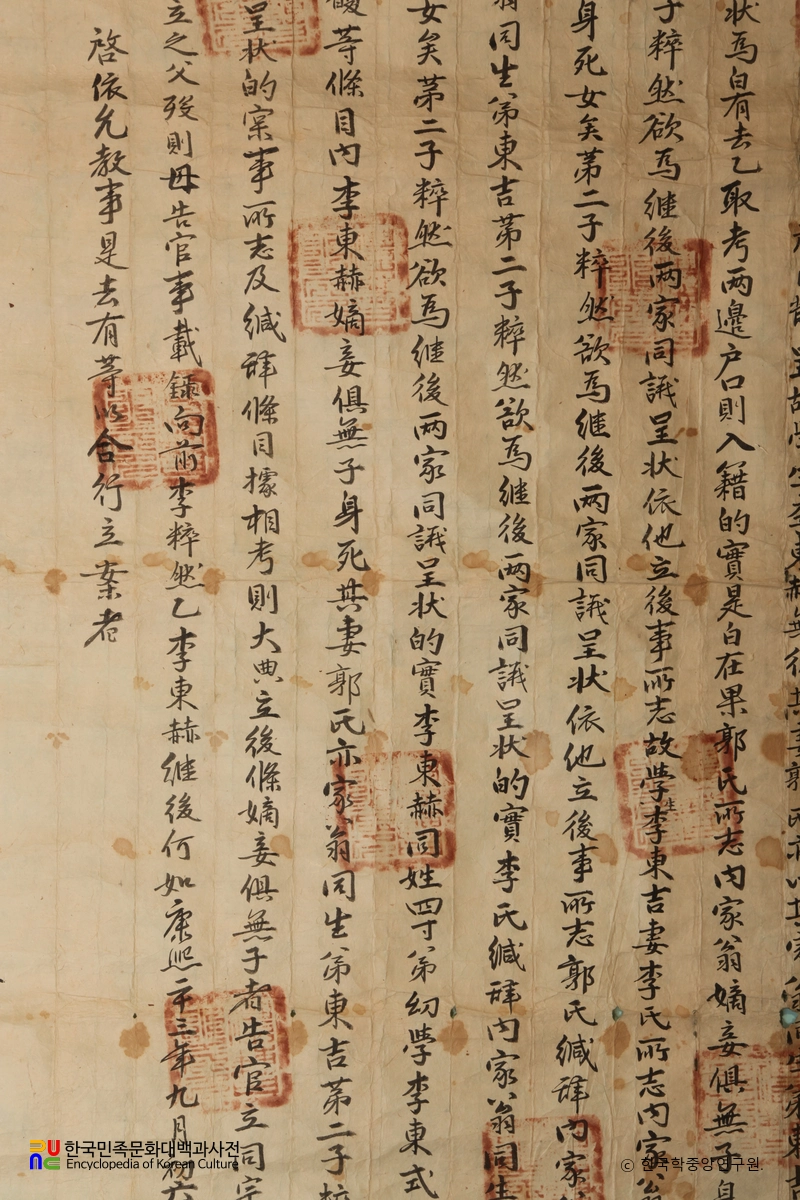 呈故學生李東赫無後其妻郭氏亦以其家翁同生弟東吉
狀爲白有去乙取考兩邊戶口則入籍的實是白在果郭氏所志內家翁嫡妾俱無子身
子粹然欲爲継後兩家同議呈狀依他立後事所志故學生李東吉妻李氏所志內家翁
身死女矣第二子粹然欲爲継後兩家同議呈狀依他立後事所志郭氏緘辞內家
翁同生弟東吉第二子粹然欲爲継後兩家同議呈狀的實李氏緘辞內家翁同生
女矣第二子粹然欲爲継後兩家同議呈狀的實李東赫同姓四寸弟幼學李東式
等條目內李東赫嫡妾俱無子身死其妻郭氏亦家翁同生弟東吉第二子粹
呈狀的實事所志及緘辞條目據相考則大典立後條嫡妾俱無子者告官立同宗
立之父歿則母告官事載錄向前李粹然乙李東赫継後何如康熙二十三年九月初六
啓依允敎事是去有等以合行立案者
한국민족문화대백과사전
Encyclopedia of Korean Culture
ⓒ 한국학중앙연구원.